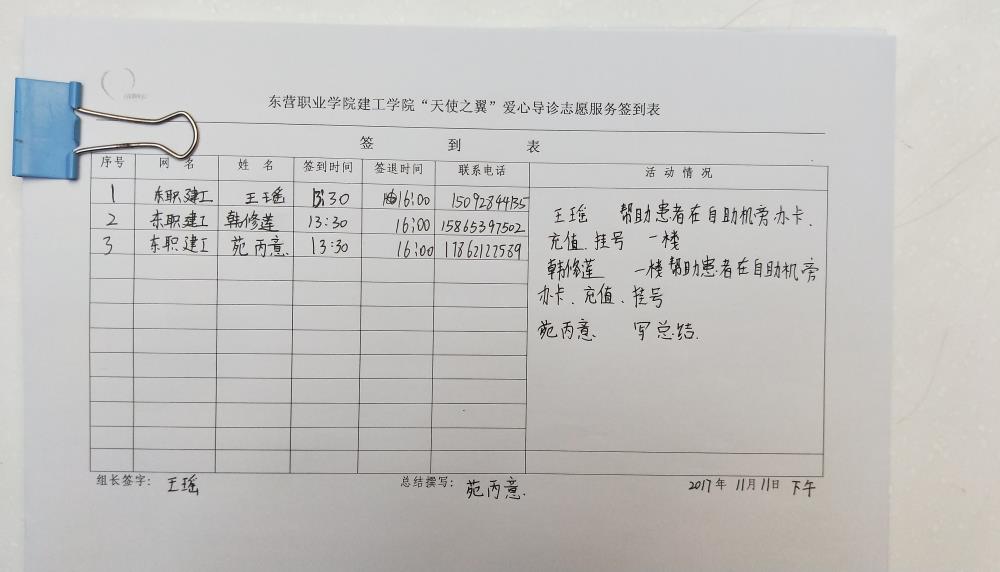 东营职业学院建工学院“天使之翼”爱心导诊志愿服务签到表
签 到 表
序号 网 名 姓 名 签到时间 签退时间 联系电话 活 动 情 况
1 东职建工 王瑶 13:30 16:00 15092844135
2 东职建工 韩修莲 13:30 16:00 15865397502
3 东职建工 苑丙意 13:30 16:00 17862127539
王瑶 帮助患者在自助机旁办卡、
充值、挂号 一楼
韩修莲 一楼帮助患者在自助机旁
办卡、充值、挂号
苑丙意 写总结.
组长签字: 王瑶 总结撰写: 苑丙意. 2017年 11月11日 下午